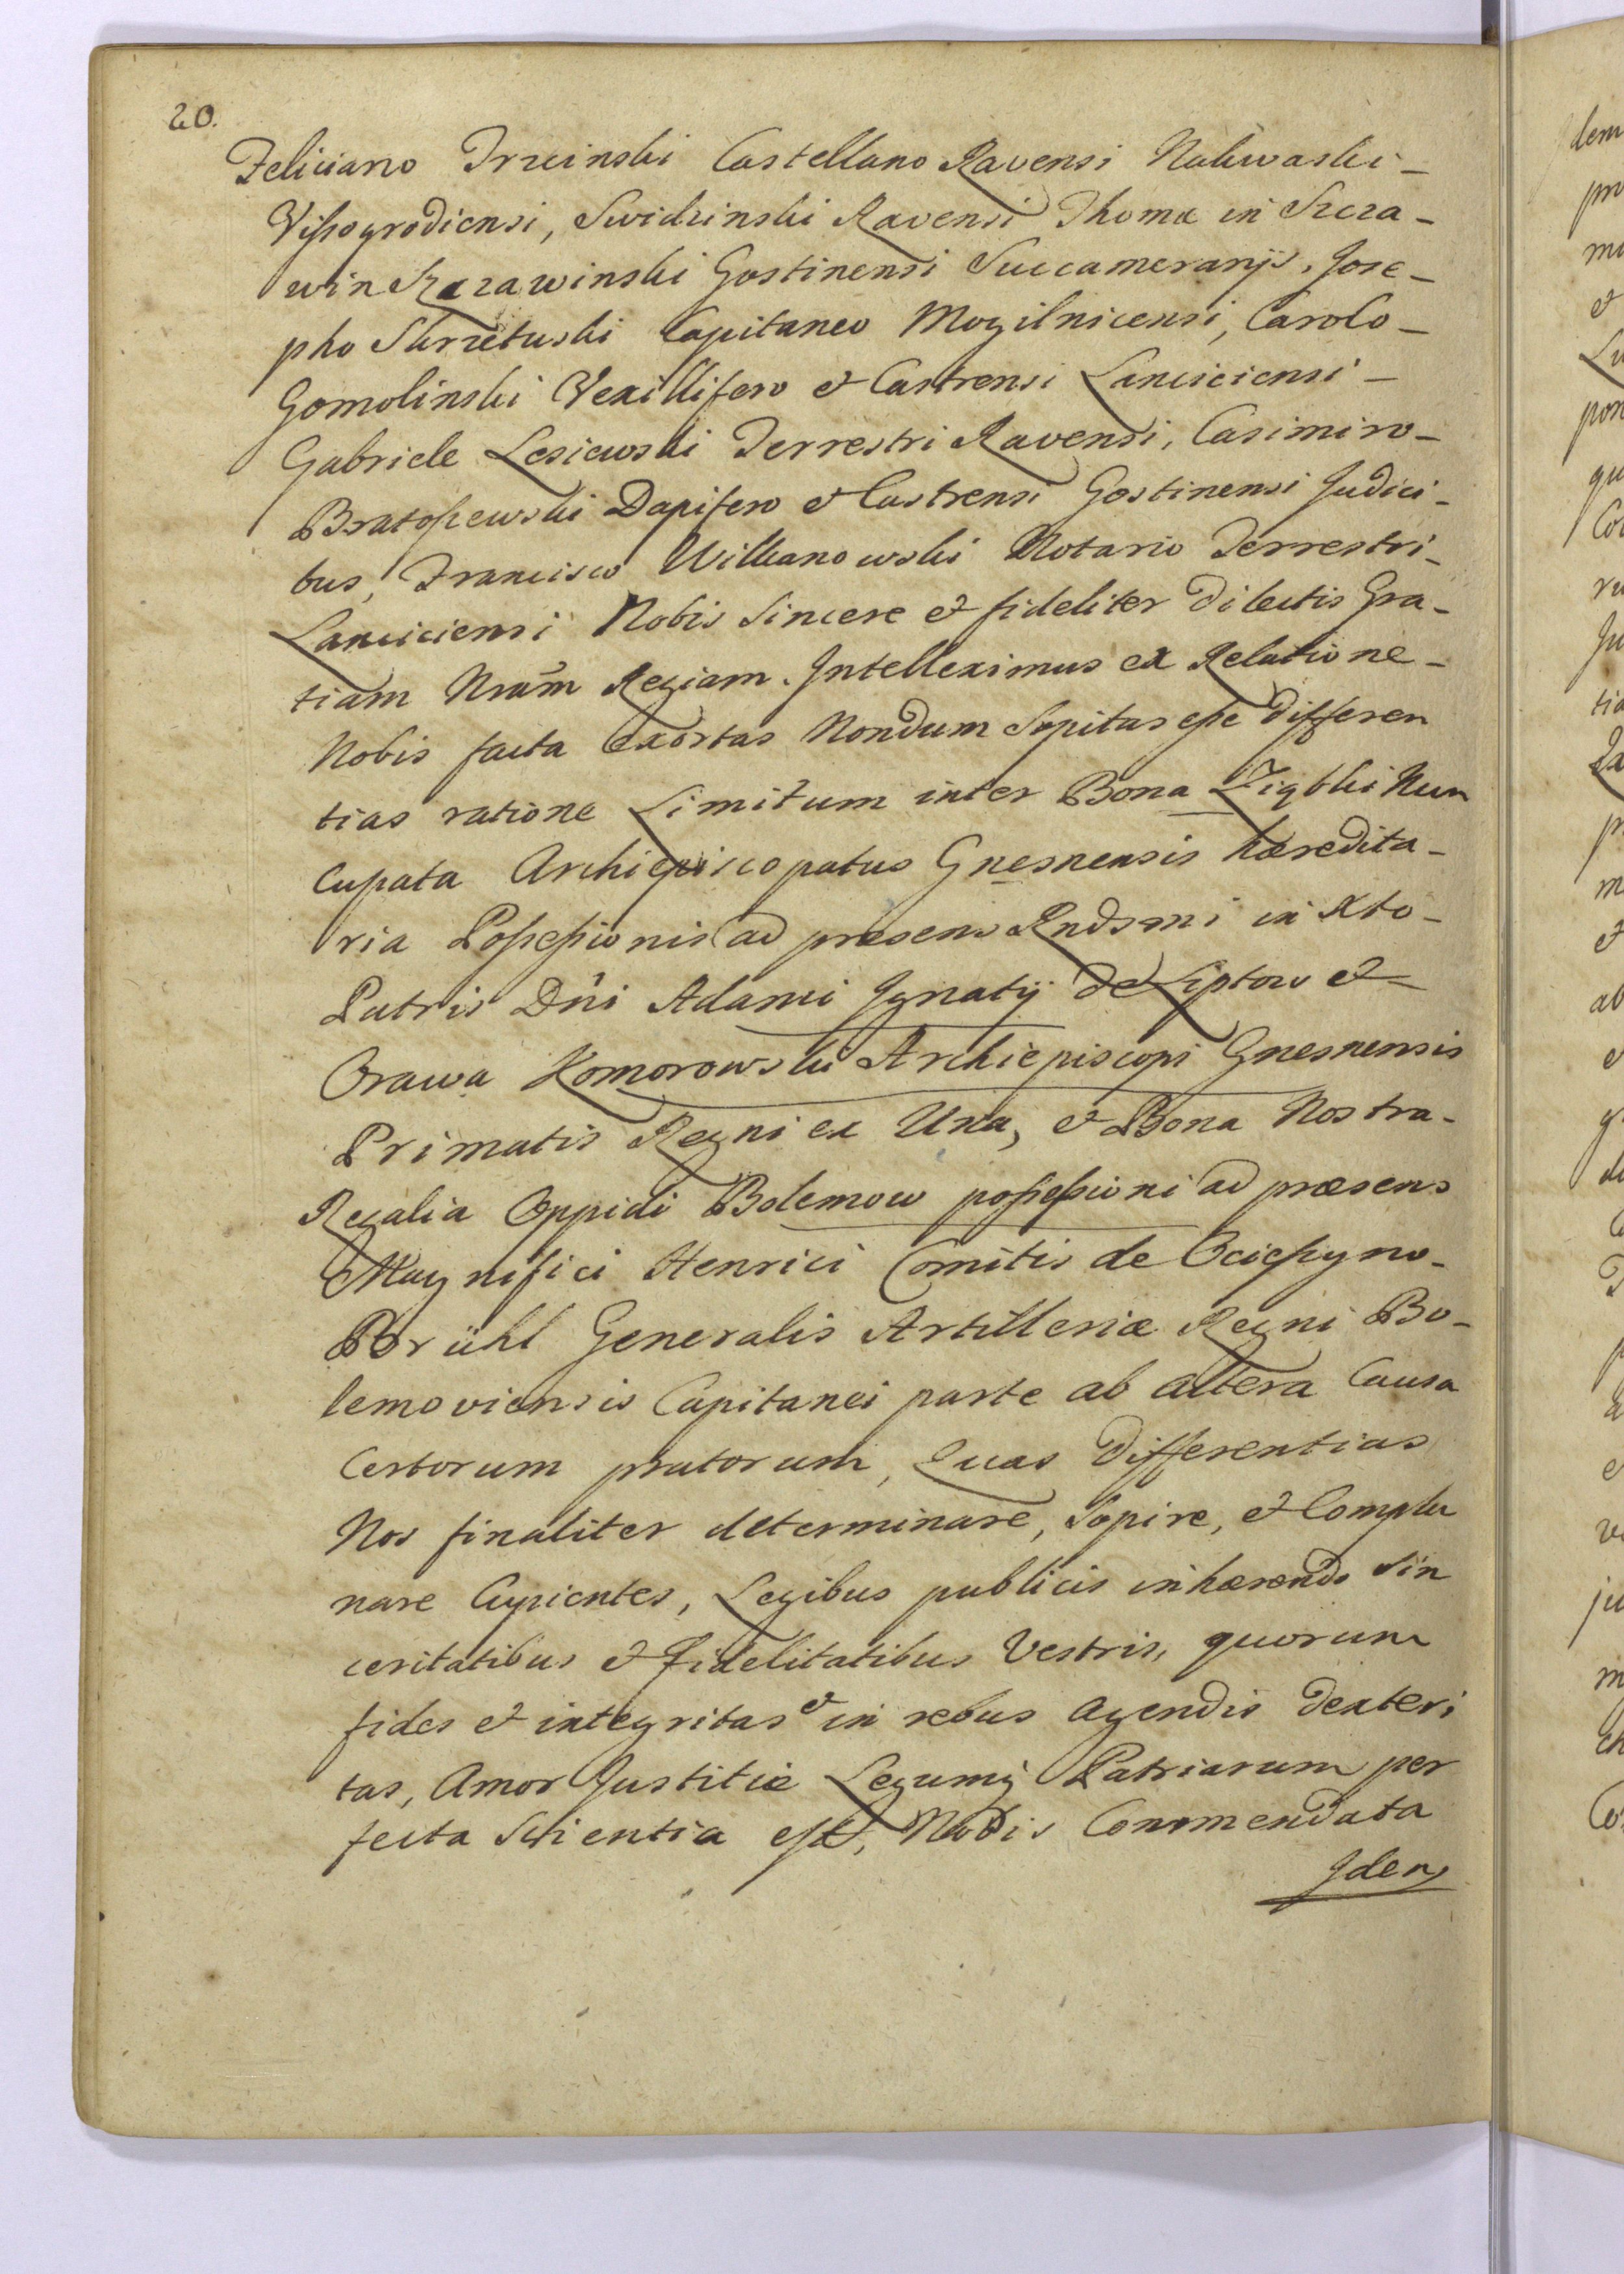 20.
Feliciano Trzcinski Castellano Ravensi Nakwaski –
Vissogrodiensi, Swidzinski Ravensi Thoma in Szcza –
win Szczawinski Gostinensi Succamerarijs, Jose –
pho Skrzetuski Capitaneo Mogilnicensi, Carolo –
Gomolinski Vexillifero et Castrensi Lanciciensi –
Gabriele Lesiewski Terrestri Ravensi, Casimiro –
Bratoszewski Dapifero et Castrensi Gostinensi Judici –
bus, Francisco Wilkanowski Notario Terrestri –
Lanciciensi Nobis Sincere et fideliter Dilectis Gra –
tiam Nram Regiam. Intelleximus ex Relatione –
Nobis facta Exortas Nondum Sopitas esse Differen
tias ratione Limitum inter Bona Ziąbki Nun
Cupata Archiepiscopatus Gnesnensis hæredita –
ria Possessionis ad presens Rndsmi in Xto –
Patris Dni Adami Ignatij de Liptow et –
Orawa Komorowski Archiepiscopi Gnesnensis
Primatis Regni ex Una, et Bona Nostra –
Regalia Oppidi Bolemow possessioni ad præsens
Magnifici Henrici Comitis de Ocieszyno –
Brühl Generalis Artilleriæ Regni Bo –
lemoviensis Capitanei parte ab altera Causa
Certorum pratorum, Quas Differentias
Nos finaliter determinare, Sopire, et Compla
nare Cupientes, Legibus publicis inhærendo Sin
ceritatibus et Fidelitatibus Vestris, quorum
fides et integritas et in rebus agendis Dexteri
tas, Amor Justitiæ Legumq Patriarum per
fecta Scientia est, Nobis Commendata
Iden
lem
pr
et
pon
qu
et
ab